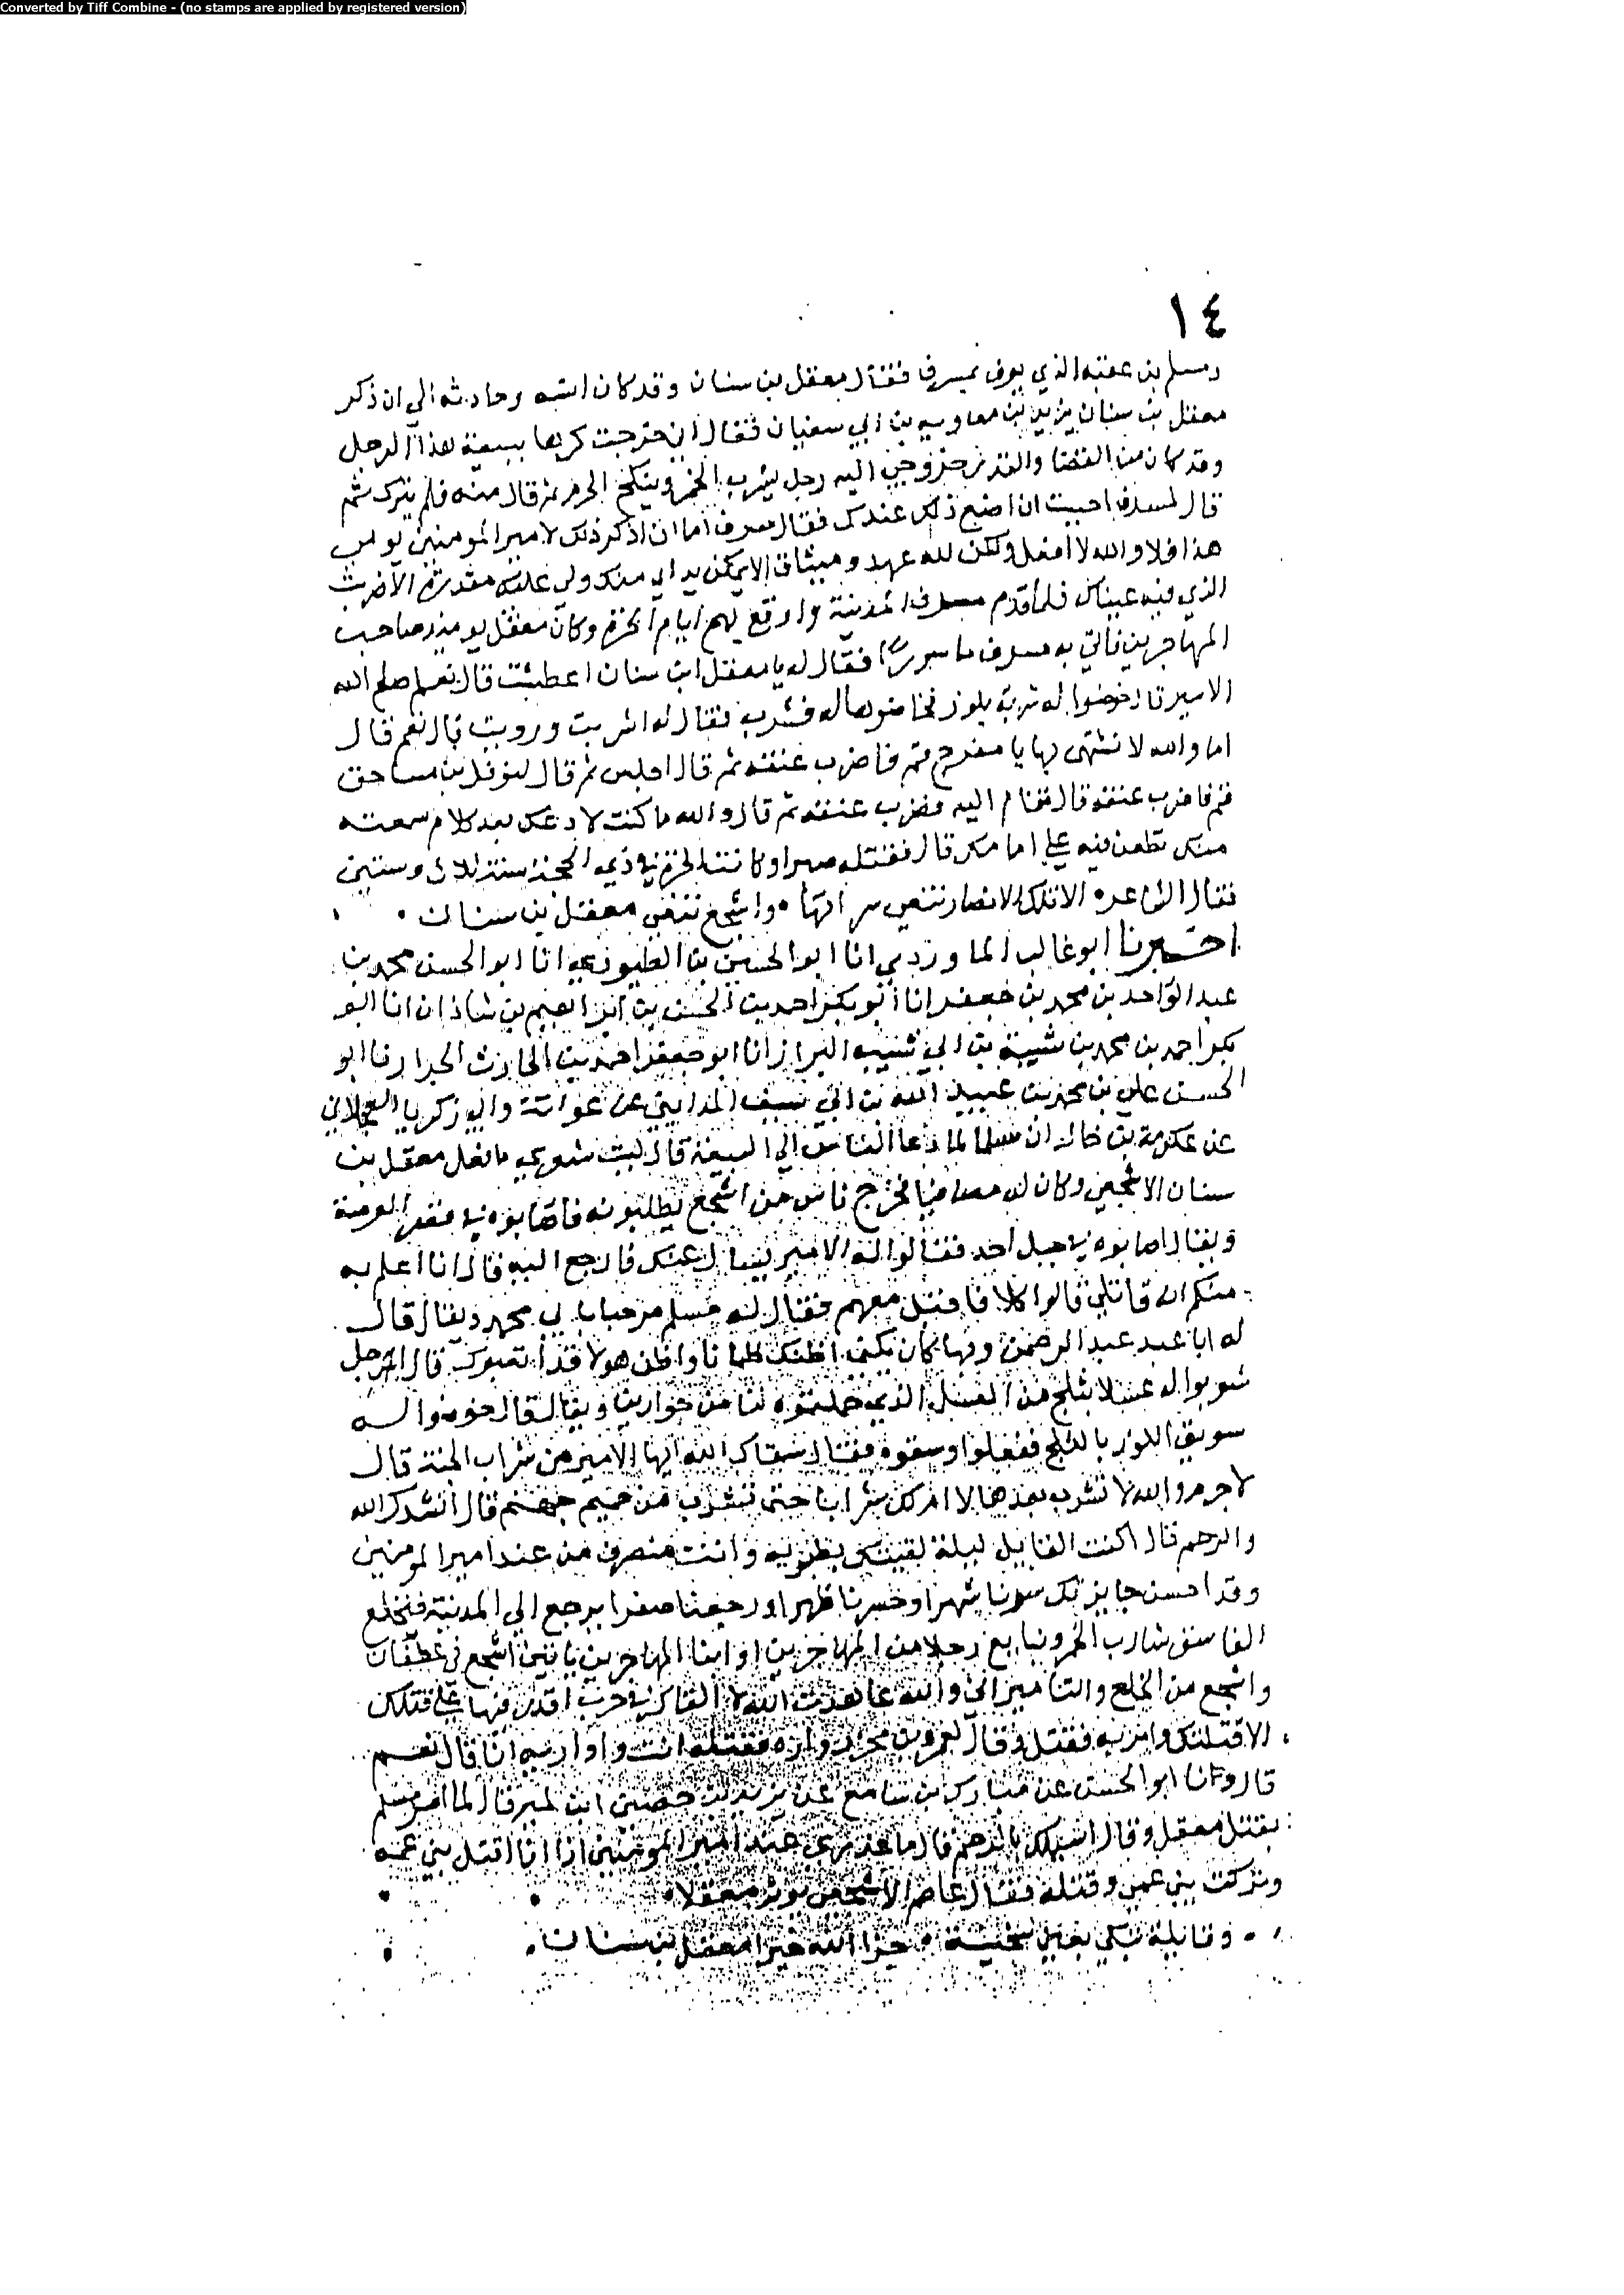 Converted by Tiff Combine - (no stamps are applied by registered version)
١٤
ومسلم بن عقبه الذي يعرف بمسرف فقال معقل بن سنان وقد كان انسه وحادثه الي ان ذكر
معقل بن سنان يزيد بن معاويه بن ابي سفيان فقال اني خرجت كرها ببيعة هذا الرجل
وقد كان من القضا والقدر خروجي اليه رجل يشرب الخمر وينكح الحرم ثم قال منه فلم يترك ثم
قال لمسرف احببت ان اضع ذلك عندك فقال مسرف اما ان اذكر ذلك لامير المومنين يومي
هذا فلا والله لا افعل ولكن لله عهد وميثاق الا يمكن يداي منك ولي عليك مقدرة الا ضربت
الذي فيه عيناك فلما قدم مسرف المدينة واوقع بهم ايام الحرة وكان معقل يومئذ صاحب
المهاجرين فاتي به مسرف ماسورًا فقال له يا معقل ابن سنان اعطشت قال نعم اصلح الله
الامير قال خوضوا له شربة بلوز فخاضوها له فشرب فقال له اشربت ورويت قال نعم قال
اما والله لا تشتهي بها يا مفرج قم فاضرب عنقه ثم قال اجلس ثم قال لنوفل بن مساحق
قم فاضرب عنقه قال فقام اليه فضرب عنقه ثم قال والله ما كنت لادعك بعد كلام سمعته
منك تطعن فيه علي امامك قال فقتله صبرا وكانت الحرة في ذي الحجة سنة ثلاث وستين
فقال الشاعر ه الا تلك الانصار تنعي سراتها • واشجع تنعي معقل بن سنان •
اخبرنا ابو غالب الماوردي انا ابو الحسين بن الطيوري انا ابو الحسن محمد بن
عبد الواحد بن محمد بن جعفر انا ابو بكر احمد بن الحسن بن ابراهيم بن شاذان انا ابو
بكر احمد بن محمد بن شيبة بن ابي شيبه البزاز انا ابو جعفر احمد بن الحارث الخراز نا ابو
الحسن علي بن محمد بن عبيد الله بن ابي سيف المدايني عن عوانة وابي زكريا العجلاني
عن عكرمة بن خالد ان مسلما لما دعا الناس الي البيعة قال ليت شعري ما فعل معقل بن
سنان الاشجعي وكان له مصافيا فخرج ناس من اشجع يطلبونه فاصابوه في قصر العرصة
ويقال اصابوه في جبل احد فقالوا له الامير يسال عنك فارجع اليه قال انا اعلم به
منكم انه قاتلي قالوا كلا فاقبل معهم فقال له مسلم مرحبا بابي محمد ويقال قال
له ابا عبد الرحمن وبها كان يكنى اظنك ظمانا واظن هولا قد اتعبوك قال اجل
شوبوا له عسلا بثلج من العسل الذي حملتموه لنا من حوارين ويقال قال خوضوا له
سويق اللوز بالثلج ففعلوا وسقوه فقال سقاك الله ايها الامير من شراب الجنة قال
لا جرم والله لا تشرب بعدها لا ام لك شرابا حتى تشرب من حميم جهنم قال انشدك الله
والرحم قال اكنت القايل ليلة لقيتك بطبرية وانت منصرف من عند امير المومنين
وقد احسن جايزتك سرنا شهرا وخسرنا ظهرا ورجعنا صفرا يرجع الي المدينة فنخلع
الفاسق شارب الخمر ونبايع رجلا من المهاجرين او ابنا المهاجرين يا تيس اشجع فى غطفان
واشجع من الخلع والتامير اني والله عاهدت الله لا القاك في حرب اقدر فيها علي قتلك
الا قتلتك وامر به فقتل وقال لعمرو بن محرز وازه فقتله انت واواريه انا قال نعم
قال وانا ابو الحسن عن مبارك بن سامع عن يزيد بن حصين ابن نمير قال لما امر مسلم
بقتل معقل وقال اسهلك بالرحم قال ما عذري عند امير المومنين اذا انا اقتل بني عمه
وتركت بني عمي وقتله فقال عاصم الاشجعي يوثر معقلا •
• وقايلة تبكي بعين سخينة • جزا الله خيرا معقل بن سنان •